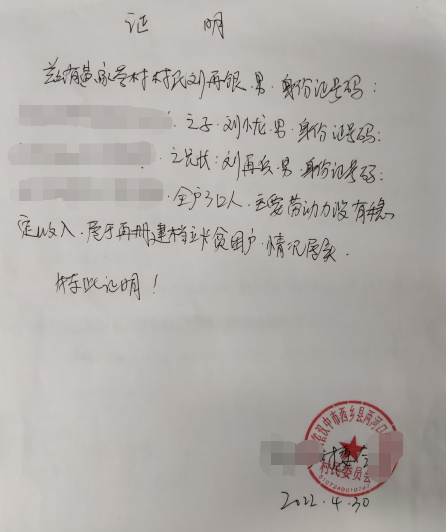 证 明
兹有黄家营村村民刘再银.男.身份证号码:
之子.刘忧.男.身份证号码:
之兄状:刘再兵.男.身份证号码:
全户3口人.主要带动力没有稳
定收入.属于再册建档立卡贫困户.情况属实.
特此证明!
汉中市西乡县两河口
村民委员会
2022.4.30